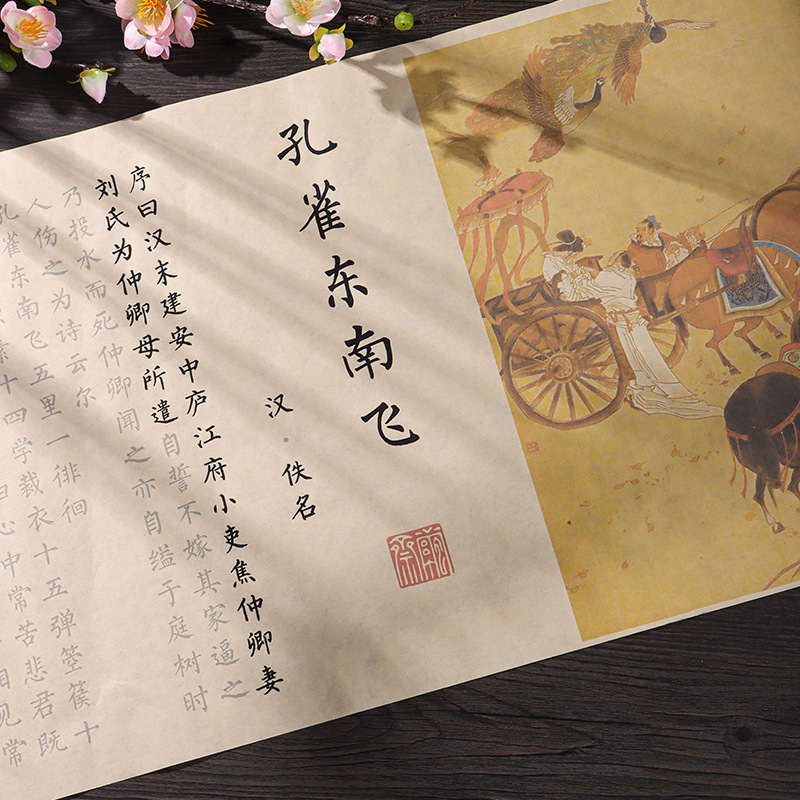 孔雀东南飞
汉·佚名
序曰汉末建安中庐江府小吏焦仲卿妻
刘氏为仲卿母所遣自誓不嫁其家逼之
乃投水而死仲卿闻之亦自缢于庭树时
人伤之为诗云尔
孔雀东南飞五里一徘徊
素十四学裁衣十五弹箜篌十
心中常苦悲君既
相见常